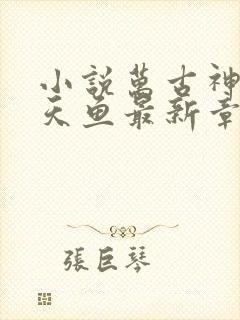 小說萬古神
天魚最新章
張巨琴